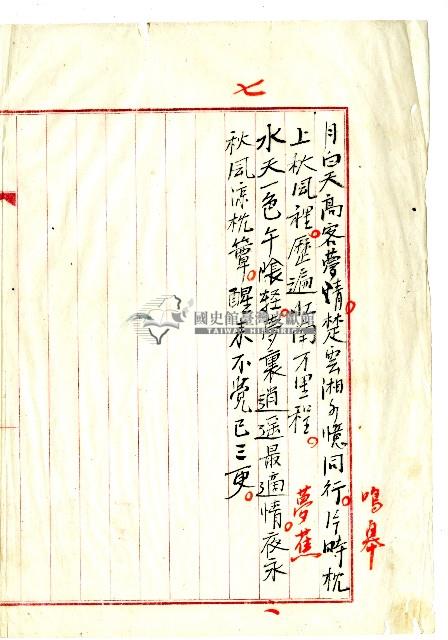 七
鳴皋
月白天高客夢情。楚雲湘水憶同行。片時枕
上秋風裡。歷遍江南万里程。
夢蕉
水天一色午輕。夢裏逍遥最適情。夜永
秋風涼枕簟。醒來不覺已三更。
國史館臺灣文獻館
TAIWAN HISTORICA